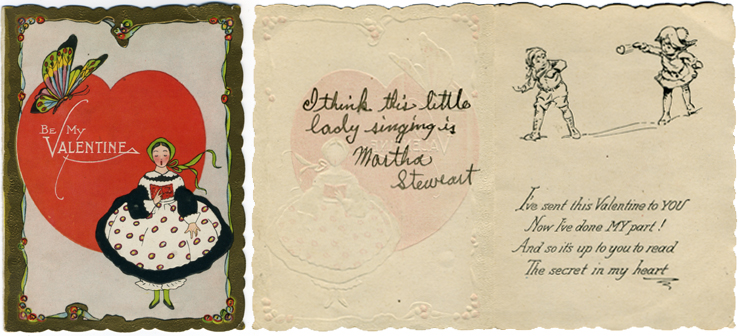 Be My
Valentine
I think this little
lady singing is
Martha
Steweart
I've sent this Valentine to YOU
Now I've done MY part!
And so it's up to you to read
The secret in my heart